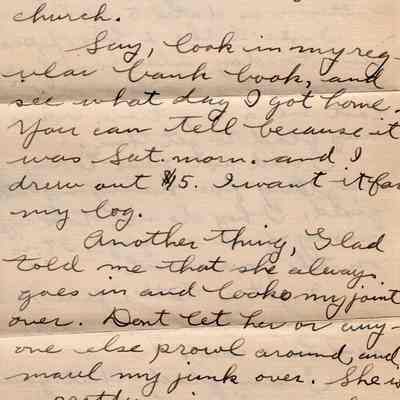 church.
Say, look in my reg-
ular bank book, and
see what day I got home.
You can tell because it
was Sat. morn. and I
drew out $5. I want it for
my log.
Another thing, Glad
told me that she always
goes in and looks my joint
over. Dont let her or any-
one else prowl around, and
maul my junk over. She is